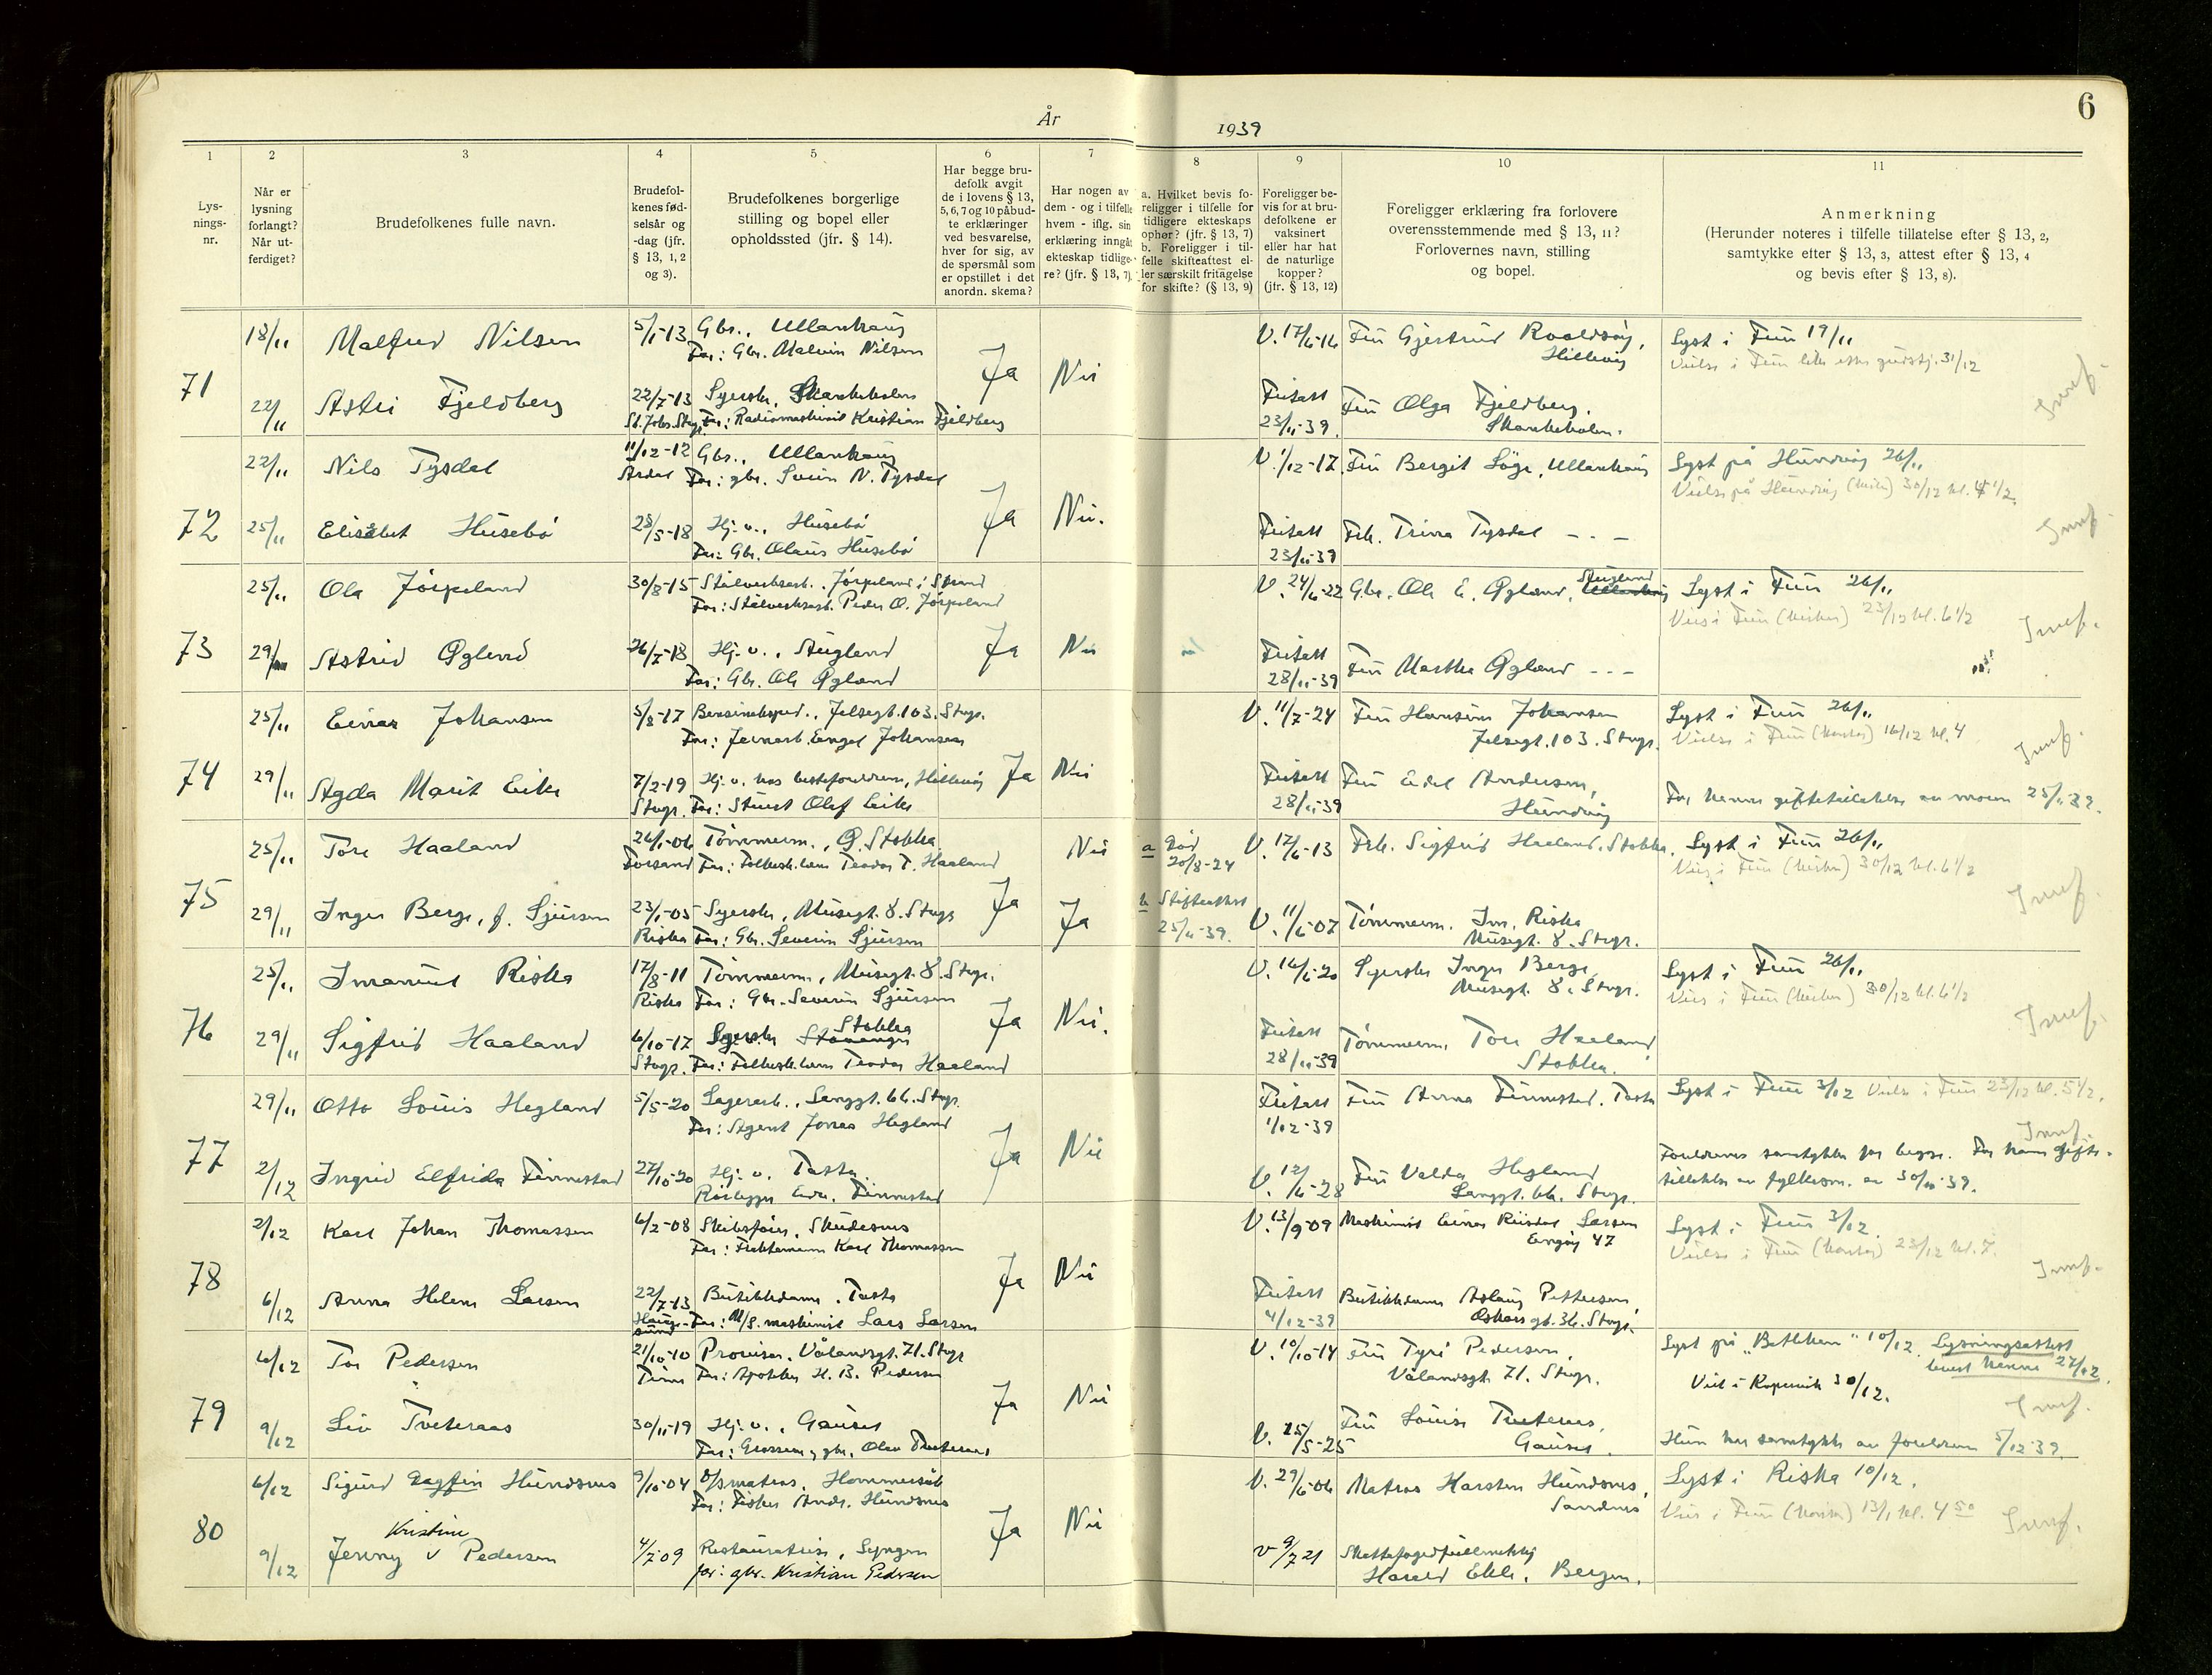 År
1939
6
1
2
3
4
5
6
7
8
9
10
11
Lys-
nings-
nr.
Når er
lysning
forlangt?
Når ut-
ferdiget?
Brudefolkenes fulle navn.
Brudefol-
kenes fød-
selsår og
-dag (jfr.
§ 13, 1, 2
og 3).
Brudefolkenes borgerlige
stilling og bopel eller
opholdssted (jfr. § 14).
Har begge bru-
defolk avgit
de i lovens § 13,
5, 6, 7 og 10 påbud-
te erklæringer
ved besvarelse,
hver for sig, av
de spørsmål som
er opstillet i det
anordn. skema?
Har nogen av
dem - og i tilfelle
hvem - iflg. sin
erklæring inngåt
ekteskap tidlige-
re? (jfr. § 13, 7).
a. Hvilket bevis fo-
religger i tilfelle for
tidligere ekteskaps
ophør? (jfr. § 13, 7)
b. Foreligger i til-
felle skifteattest el-
ler særskilt fritagelse
for skifte? (§ 13, 9)
Foreligger be-
vis for at bru-
defolkene er
vaksinert
eller har hat
de naturlige
kopper?
(jfr. § 13, 12)
Foreligger erklæring fra forlovere
overensstemmende med § 13, 11?
Forlovernes navn, stilling
og bopel.
Anmerkning
(Herunder noteres i tilfelle tillatelse efter § 13, 2,
samtykke efter § 13, 3, attest efter § 13, 4
og bevis efter § 13, 8).
71
18/11 Malfred Nilsen 5/1-13 Gbr., Ullanhaug V. 17/6-16 Fru Gjertrud Roaldsøy, Lyst i Frue 19/11
Far: Gbr. Malvin Nilsen Hillevåg
Ja Nei
22/11 Astri Fjeldberg 22/7-13 Syerske, Skankeholen Fritatt Fru Olga Fjeldberg,
Far: Radiomaskinist Kristian Fjeldberg 23/11-39. Skankeholen.
72
22/11 Nils Tysdal 11/12-12 Gbr., Ullanhaug V. 1/12-17. Fru Bergit Løge, Ullanhaug Lyst på Hundvåg 26/11
Årdal Far: gbr. Svein N. Tysdal
Ja Nei.
25/11 Elisabet Husebø 28/5-18 Hj. v., Husebø Fritatt Frk. Trina Tysdal - . -
Far: Gbr. Olaus Husebø 23/11-39
73
25/11 Ola Jørpeland 30/8-15 Stålverksarb., Jørpeland i Strand V. 24/6-22 Gbr. Ole E. Øgland, Lyst i Frue 26/11
Far: Stålverksarb. Peder O. Jørpeland Vies i Frue (kirken) 23/12 kl. 6 1/2
29/11 Astrid Øglend 26/7-13 Hj. v., Ja Nei Fritatt Fru Martha Øgland - - -
Far: Gbr. Ole Øgland 28/11-39
74
25/11 Einar Johansen 5/8-17 Bensineksped., Jelsegt. 103. Stvgr. V. 11/7-24 Fru Johansen Lyst i Frue 26/11
Far: Jernarb. Engel Johansen Jelsegt. 103. Stvgr. Vielse i Frue 16/12 kl. 4
29/11 Agda Marit Eike 7/2-19 Hj. v. hos besteforeldrene, Hillevåg Ja Nei Fritatt Fru Eidel Andersen,
Stvgr. Far: Stuert Olaf Eike 28/11-39 Hundvåg 25/11 39.
75
25/11 Tore Haaland 26/1-06 Tømmerm., Ø. Stokka Nei a Død V. 12/6-13 Frk. Sigfrid Haaland. Stokka. Lyst i Frue 26/11
Forsand Far: Teodor T. Haaland 20/8-24 Vies i Frue (kirken) 30/12 kl. 6 1/2
29/11 Inger Berge, f. Sjursen 23/1-05 Syerske, Musegt. 8. Stvgr Ja Ja b Skifteattest V. 11/6-07 Tømmerm. Im. Riska
Riska Far: Gbr. Severin Sjursen 25/11-39. Musegt. 8. Stvgr.
76
25/11 Imanuel Riska 17/8-11 Tømmerm., Musegt. 8. Stvgr. V. 16/6-20 Syerske Inger Berge, Lyst i Frue 26/11
Riska Far: Gbr. Severin Sjursen Musegt. 8. Stvgr. Vies i Frue (kirken) 30/12 kl. 6 1/2
29/11 Sigfrid Haaland 6/10-17 Syerske Stavanger Stokka Ja Nei. Fritatt Tømmerm. Tore Haaland
Stvgr. Far: Teodor Haaland 28/11-39 Stokka.
77
29/11 Otto Louis Hegland 5/5-20 Lagerarb., Langgt. 66. Stvgr. Fritatt Fru Anna Finnestad. Tasta Lyst i Frue 3/12 Vielse i Frue 23/12 kl. 5 1/2.
Far: Agent Jonas Hegland 1/12-39
Ja Nei
2/12 Ingrid Elfrida Finnestad 27/10-20 Hj. v. Tasta V. 12/6-28 Fru Valda Hegland Foreldrenes samtykke for begge.
Finnestad Langgt. 66. Stvgr. 30/11-39.
78
2/12 Karl Johan Thomassen 6/2-08 Skudesnes V. 13/9-09 Maskinist Einar Larsen Lyst i Frue 3/12.
Far: Karl Thomassen 47 23/12 kl. 7.
6/12 Anna Helene Larsen 22/7-13 Butikkdame, Tasta Ja Nei Fritatt Butikkdame Aslaug Pettersen,
Haugesund Far: M/S. maskinist Lars Larsen 4/12-39 Oskarsgt. 36. Stvgr.
79
6/12 Tor Pedersen 21/10-10 Provisor, Vålandsgt. 71. Stvgr V. 10/10-14 Fru Tyri Pedersen, Lyst på „Betlehem“ 10/12. Lysningsattest
Far: Apoteker H. B. Pedersen Vålandsgt 71. Stvgr. levert henne 27/12.
Viet i Kopervik 30/12.
9/12 Liv Tveteraas 30/11-19 Hj. v., Gausel Ja Nei V. 25/5-25 Fru Louise Tveteraas,
Far: Grosserer, gbr. Olav Tveteraas Gausel. Hun har samtykke av foreldrene 5/12-39.
80
6/12 Sigurd Dagfin Hundsnes 9/10-04 matros, Hommersåk V. 29/6-06 Matros Karsten Hundsnes, Lyst i Riska 10/12.
Far: Fisker Andr. Hundsnes Sandnes Vies i Frue 13/1 kl. 4 50
Kristine
9/12 Jenny v Pedersen 4/7-09 Ja Nei v 9/7 21
far: gbr. Kristian Pedersen Harald Bergen.